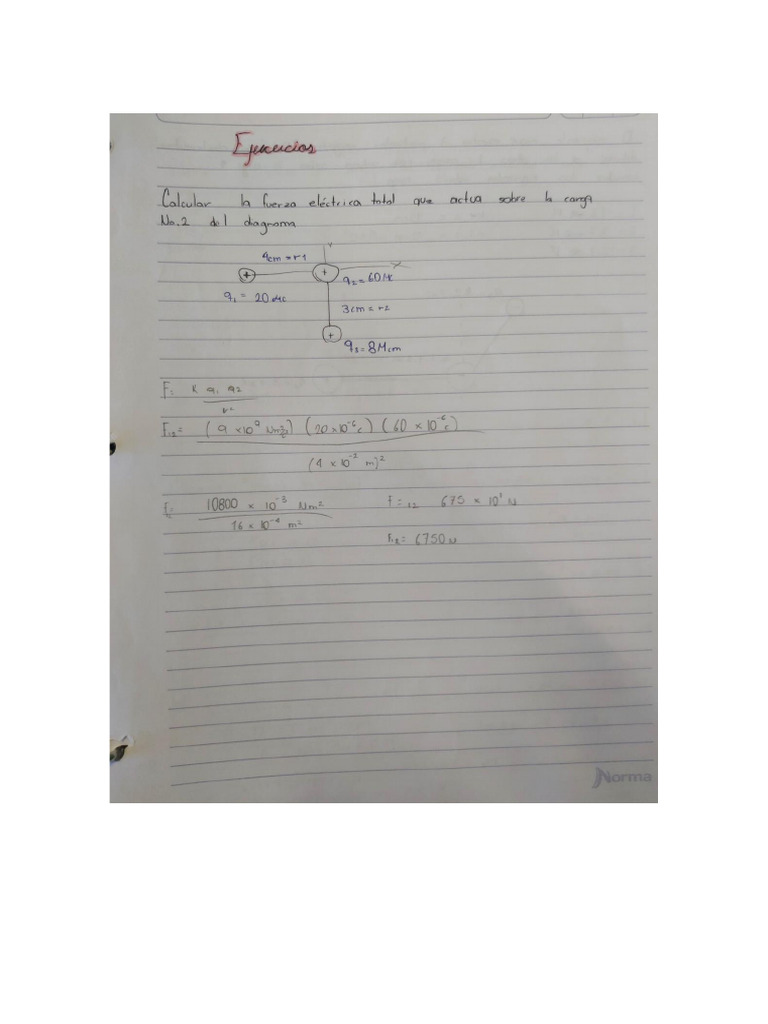 Ejercicios
Calcular la fuerza eléctrica total que actua sobre la carga
No.2 del diagrama
4cm = r1
Y
X
+
+
q₂ = 60 Mc
q₁ = 20 Mc
3cm = r2
+
q₃ = 8 Mcm
F: K q₁ q₂
r²
F₁₂ = (9 × 10⁹ Nm²/c²) (20 × 10⁻⁶ c) (60 × 10⁻⁶ c)
(4 × 10⁻² m)²
F₁₂ 10800 × 10⁻³ Nm² F = ₁₂ 675 × 10¹ N
16 × 10⁻⁴ m²
F₁₂ = 6750 N
Norma